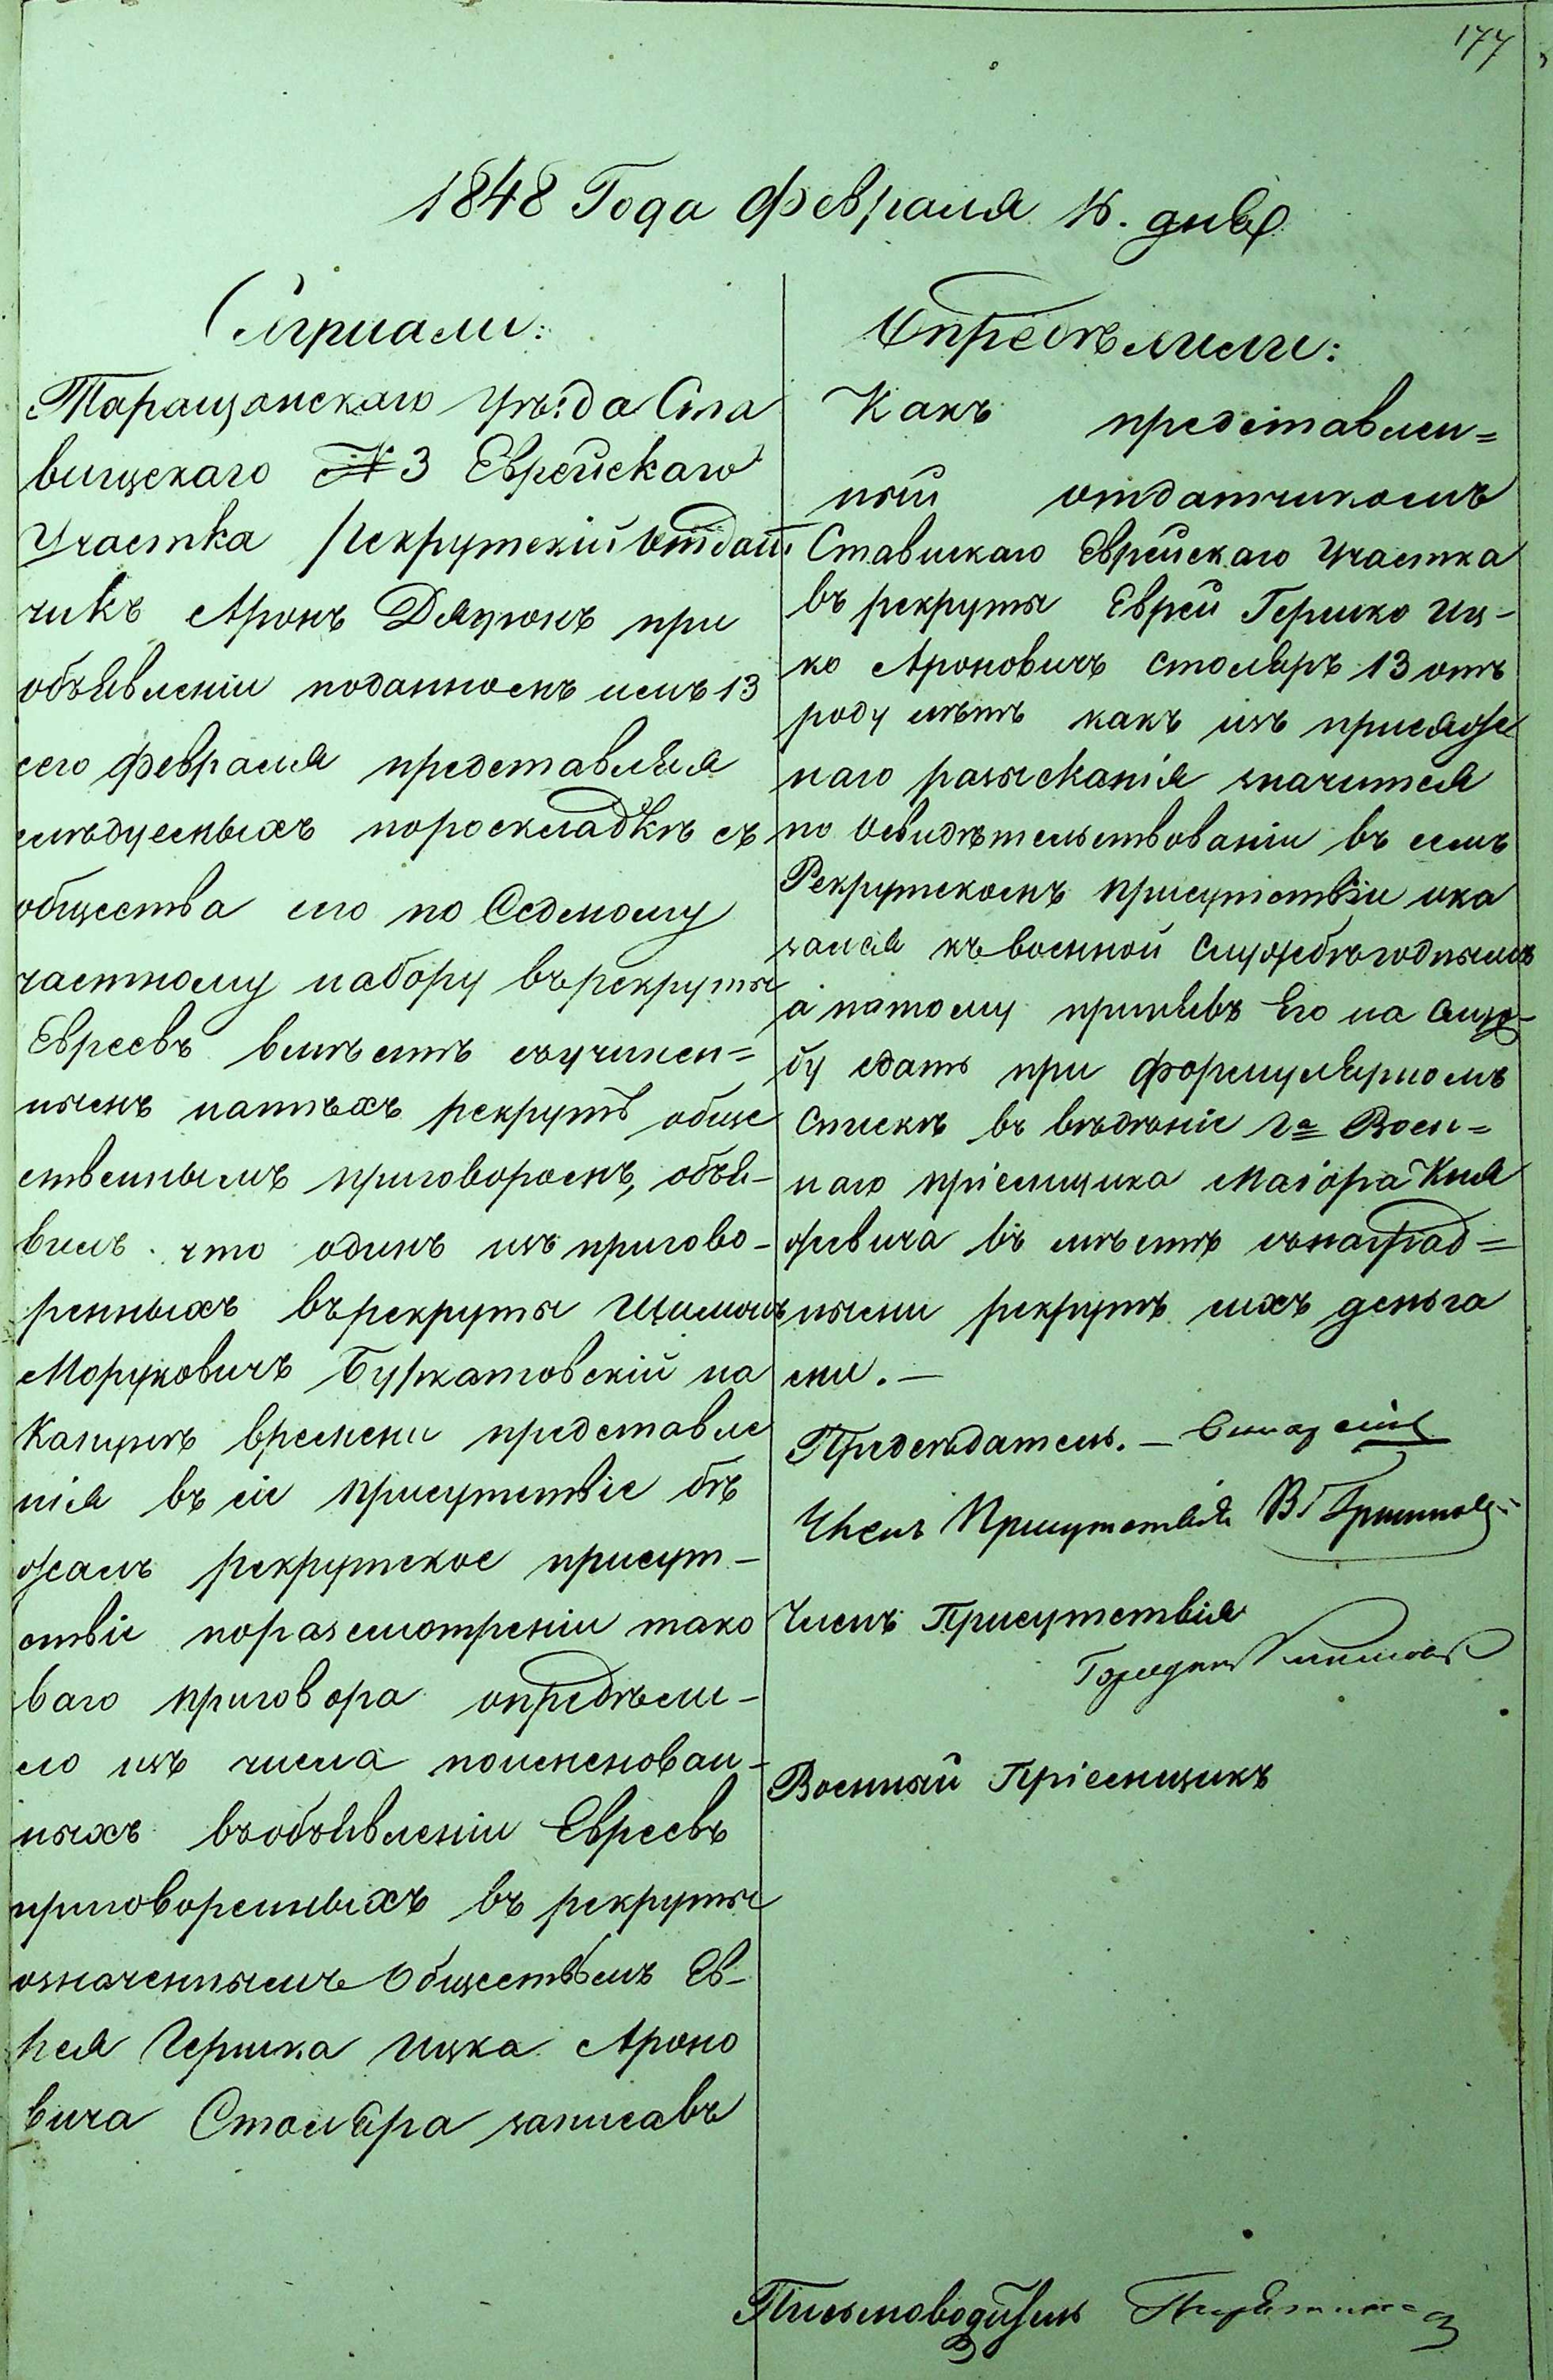 177
1848 Года Февраля 16. дня
Слушали:
Таращанскаго Уѣзда Ста
вищскаго №3 Еврейскаго
Участка Рекрутскій отдат.
чикъ Аронъ при
объявленіи поданномъ имъ 13
сего февраля представляя
слѣдуемыхъ пораскладкѣ съ
общества его по Седмому
частному набору въ рекруты
Евреевъ вмѣстѣ съучинен=
нымъ натѣхъ рекрутъ обще
ственнымъ приговоромъ, объя-
вилъ что одинъ изъ пригово-
ренныхъ върекруты
Морушковичъ на
Канунѣ времени представле
нія въ сіе присутствіе бѣ
жалъ рекрутское присут-
ствіе поразсмотреніи тако
ваго приговора опредѣли-
ло изъ числа поименован-
ныхъ въобъявленіи Евреевъ
приговоренныхъ въ рекруты
означеннымъ Обществомъ Ев-
рея Гершка Ицка Ароно
вича Столяра записавъ
Опредѣлили:
Какъ представлен=
ный отдатчикомъ
Ставискаго Еврейскаго Участка
въ рекруты Еврей Гершко Иц-
ко Ароновичъ Столяръ 13 отъ
роду лѣтъ какъ изъ присяж
наго разысканія значится
по Освидѣтельствованіи въ семъ
Рекрутскомъ присутствіи ока
зался къ военной службѣ годнымъ
а патому принявъ Его на служ-
бу сдать при формулярномъ
Спискѣ въ вѣдѣніе Га Воен=
наго пріемщика Маіора Кня
жевича въ мѣстѣ сънаград=
ными рекрутъ ихъ деньга
ми. —
Предсѣдатель. —
Членъ Присутствія
Членъ Присутствія
Военный Пріемщикъ
Письмоводитель